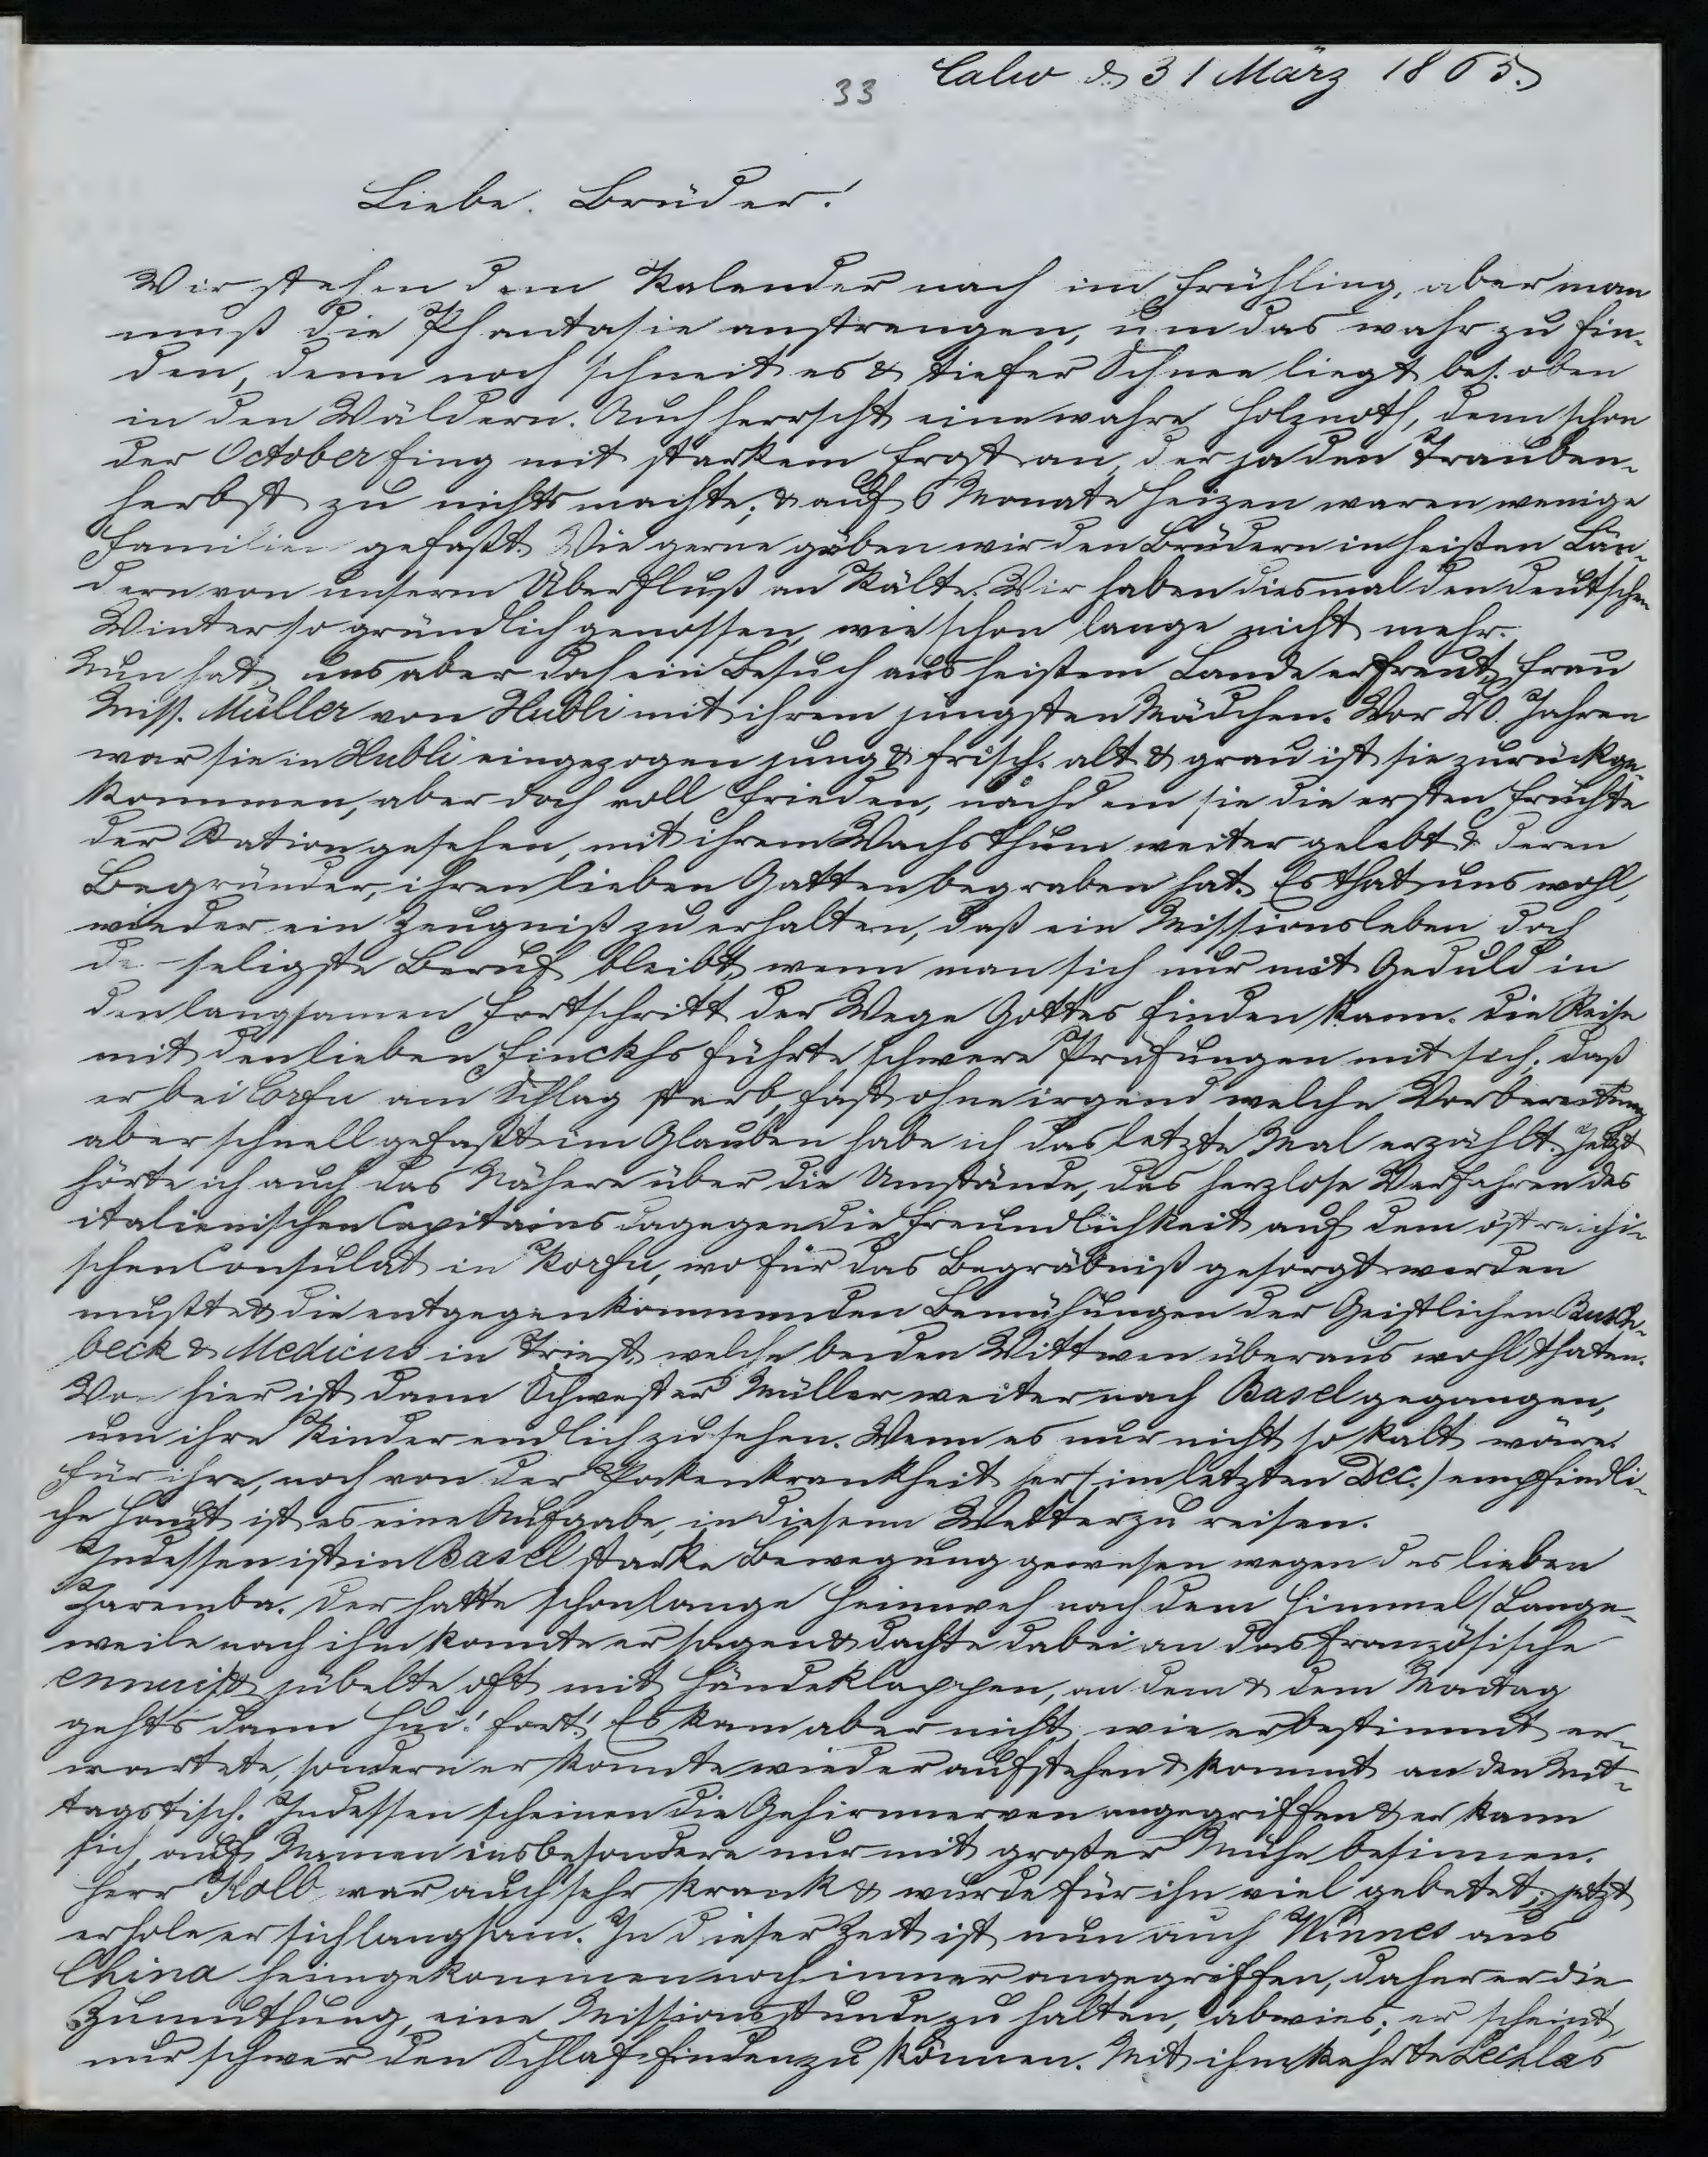 Calw d. 31 März 1865.
33
Liebe Brüder!
Wir stehen dem Kalender nach im Frühling, aber man
muß die Phantasie anstrengen, um das wahr zu fin-
den, denn noch schneit es & tiefer Schnee liegt bes. oben
in den Wäldern. Auch herrscht eine wahre Holznoth, denn schon
der October fing mit starkem Frost an, der ja den Trauben-
herbst zu nichts machte; & auf 6 Monate Heizen waren wenige
Familien gefaßt. Wie gerne gäben wir den Brüdern in heißen Län-
dern von unserm Überfluß an Kälte. Wir haben diesmal den deutschen
Winter so gründlich genossen, wie schon lange nicht mehr.
Nun hat uns aber doch ein Besuch aus heißem Lande erfreut, Frau
Miss. Müller von Hubli mit ihrem jüngsten Mädchen. Vor 20 Jahren
war sie in Hubli eingezogen jung & frisch. alt & grau ist sie zurückge-
kommen, aber doch voll Frieden, nachdem sie die ersten Früchte
der Station gesehen, mit ihrem Wachsthum weiter gelebt & deren
Begründer, ihren lieben Gatten begraben hat. Es that uns wohl,
wieder ein Zeugniß zu erhalten, daß ein Missionsleben doch
de- seligste Beruf bleibt, wenn man sich nur mit Geduld in
den langsamen Fortschritt der Wege Gottes finden kann. Die Reise
mit den lieben Finckhs führte schwere Prüfungen mit sich; daß
er bei Corfu am Schlag starb, fast ohne irgend welche Vorbereitung
aber schnell gefaßt im Glauben habe ich das letzte Mal erzählt. Jetzt
hörte ich auch das Nähere über die Umstände, das herzlose Verfahren des
italienischen Capitains dagegen die Freundlichkeit auf dem östreichi-
schen Consulat in Korfu, wo für das Begräbniß gesorgt werden
mußte & die entgegenkommenden Bemühungen der Geistlichen Busch-
beck & Medicus in Triest, welche beiden Wittwen überaus wohl thaten.
Vo- hier ist dann Schwester Müller weiter nach Basel gegangen,
um ihre Kinder endlich zu sehen. Wenn es nur nicht so kalt wäre.
Für ihre, noch von der Pokenkrankheit her (im letzten Dec.) empfindli-
che Haut ist es eine Aufgabe, in diesem Wetter zu reisen.
Indessen ist in Basel starke Bewegung gewesen wegen des lieben
Zaremba. Der hatte schon lange Heimweh nach dem Himmel (Lange-
weile nach ihm konnte er sagen & dachte dabei an das französische
ennui) & jubelte oft mit Händeklappen, an dem & dem Montag
gehts dann hui! fort! Es kam aber nicht, wie er bestimmt er-
wartete, sondern er konnte wieder aufstehen & kommt an den Mit-
tagstisch. Indessen scheinen die Gehirnnerven angegriffen & er kann
sich auf Namen insbesondere nur mit großer Mühe besinnen.
Herr Kolb war auch sehr krank & wurde für ihn viel gebetet; jetzt
erhole er sich langsam. In dieser Zeit ist nun auch Winnes aus
China heimgekommen noch immer angegriffen, daher er die
Zumuthung, eine Missionsstunde zu halten, abwies; er scheint
nur schwer den Schlaf finden zu können. Mit ihm kehrte Lechlers